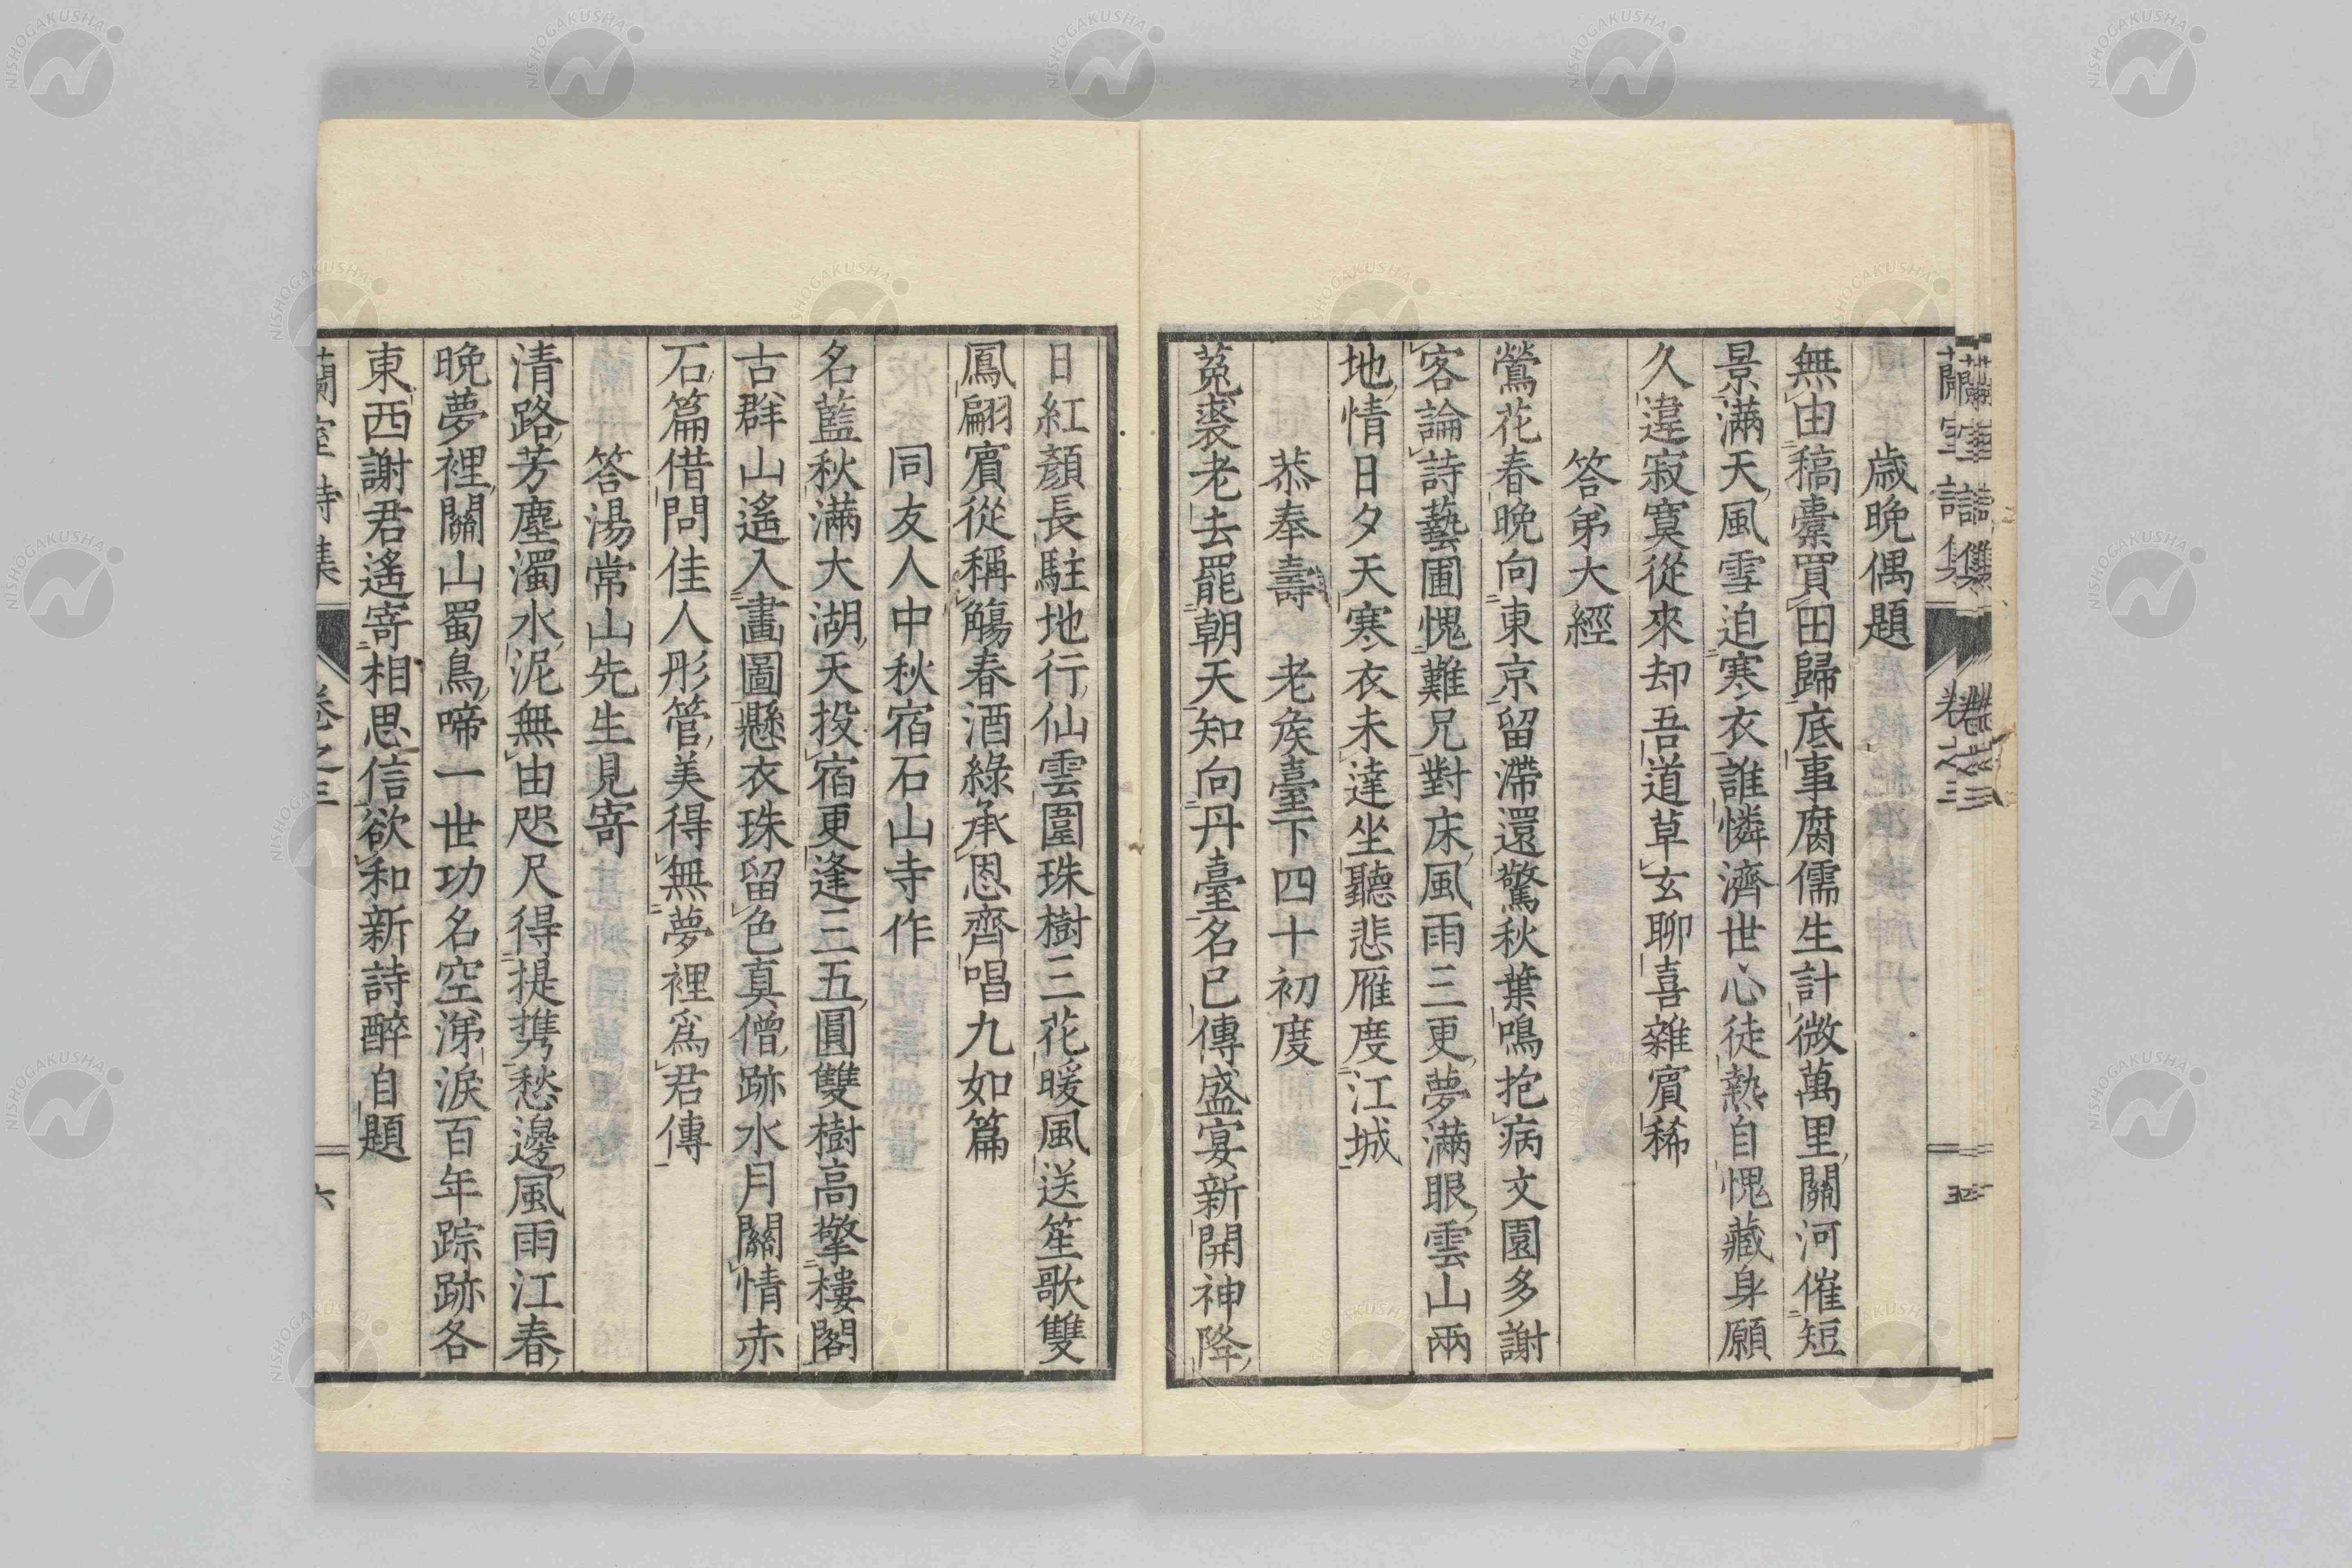 蘭室詩集 卷之三 五
歳晩偶題
無由稿槖買田歸底事腐儒生計微萬里關河催短
景滿天風雪迫寒衣誰憐濟世心徒熱自愧藏身願
久違寂寞從來却吾道草玄聊喜雜賓稀
答弟大經
鶯花春晩向東京留滯還驚秋葉鳴抱病文園多謝
客論詩藝圃愧難兄對床風雨三更夢滿眼雲山兩
地情日夕天寒衣未達坐聽悲雁度江城
恭奉壽 老矦臺下四十初度
菟裘老去罷朝天知向丹臺名已傳盛宴新開神降
日紅顏長駐地行仙雲圍珠樹三花暖風送笙歌雙
鳳翩賓從稱觴春酒綠承恩齊唱九如篇
同友人中秋宿石山寺作
名藍秋滿大湖天投宿更逢三五圓雙樹高擎樓閣
古群山遙入畫圖懸衣珠留色真僧跡水月關情赤
石篇借問佳人彤管美得無夢裡爲君傳
答湯常山先生見寄
清路芳塵濁水泥無由咫尺得提携愁邊風雨江春
晩夢裡關山蜀鳥啼一世功名空涕淚百年踪跡各
東西謝君遙寄相思信欲和新詩醉自題
蘭室詩集 卷之三 六
NISHOGAKUSHA